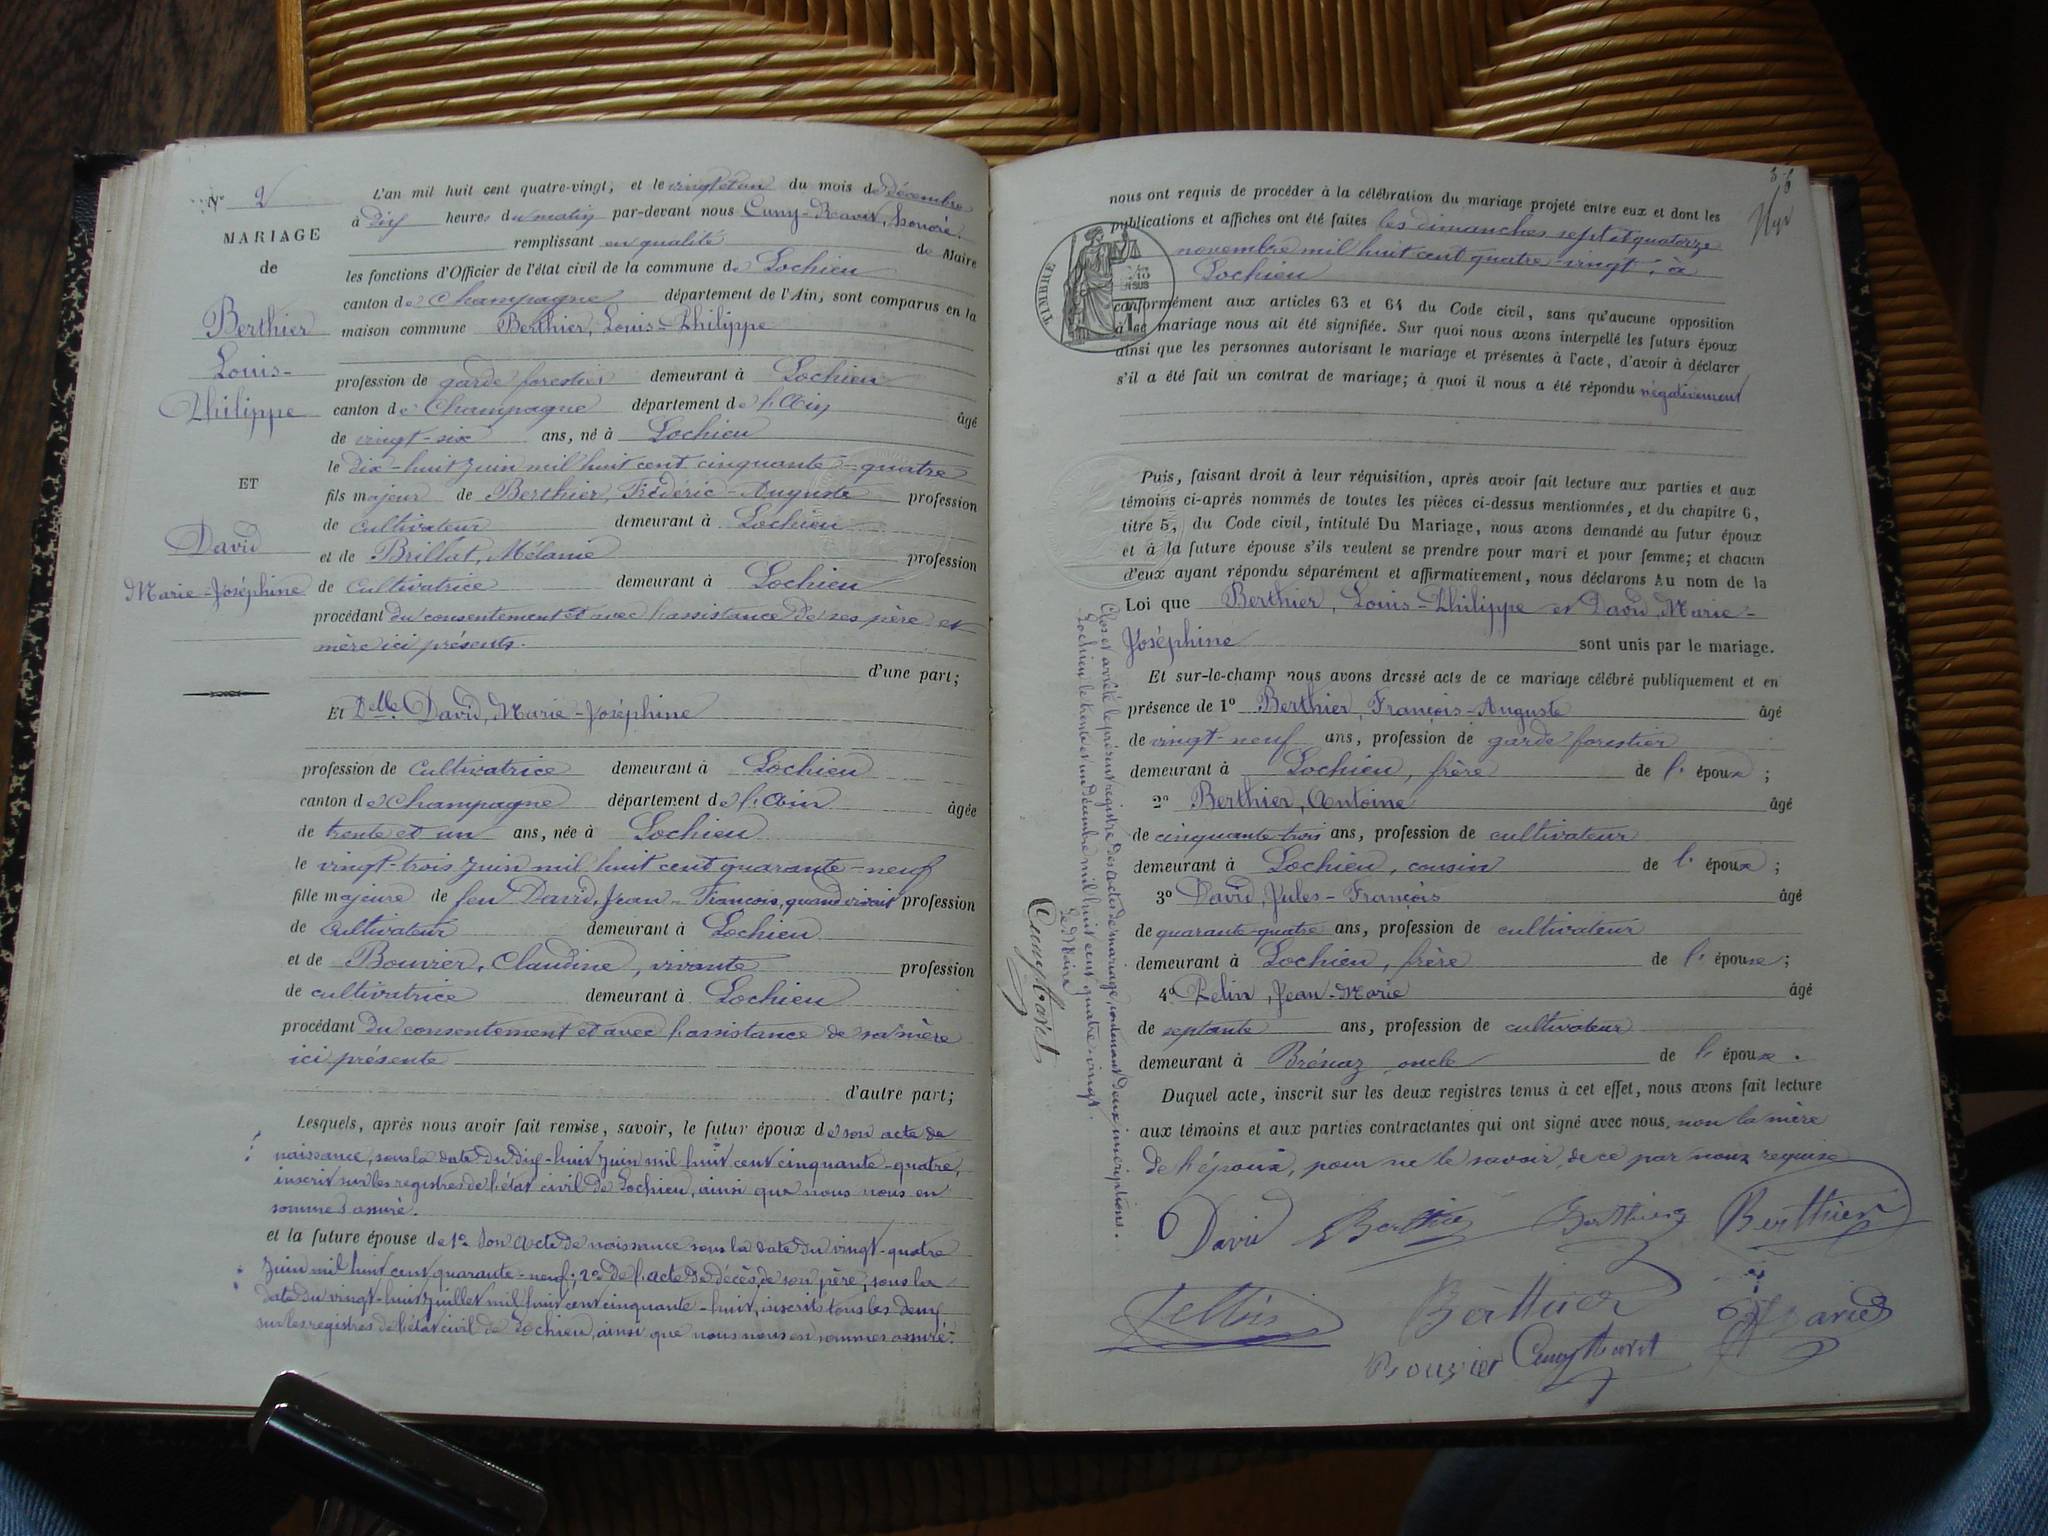 N° 2
MARIAGE
de
Berthier
Louis-
Philippe
ET
David
Marie-Joséphine
L'an mil huit cent quatre-vingt, et le vingt et un du mois de décembre
à dix heures du matin par-devant nous Cuny-Ravit, honoré.
remplissant en qualité de Maire
les fonctions d'Officier de l'état civil de la commune de Lochieu
canton de Champagne département de l'Ain, sont comparus en la
maison commune Berthier, Louis-Philippe
profession de garde forestier demeurant à Lochieu
canton de Champagne département de l'Ain âgé
de vingt-six ans, né à Lochieu
le dix-huit juin mil huit cent cinquante-quatre
fils majeur de Berthier, Frédéric-Auguste profession
de cultivateur demeurant à Lochieu
et de Brillat, Mélanie profession
de cultivatrice demeurant à Lochieu
procédant du consentement et avec l'assistance de ses père et
mère ici présents.
d'une part;
Et Delle David, Marie-Joséphine
profession de cultivatrice demeurant à Lochieu
canton de Champagne département de l'Ain âgée
de trente et un ans, née à Lochieu
le vingt-trois juin mil huit cent quarante-neuf
fille majeure de feu David, Jean-François, quand vivait profession
de cultivateur demeurant à Lochieu
et de Bouvier, Claudine, vivante profession
de cultivatrice demeurant à Lochieu
procédant du consentement et avec l'assistance de sa mère
ici présente
d'autre part;
Lesquels, après nous avoir fait remise, savoir, le futur époux de son acte de
naissance, sous la date du dix-huit juin mil huit cent cinquante-quatre,
inscrit sur les registres de l'état civil de Lochieu, ainsi que nous nous en
sommes assuré.
et la future épouse de 1° son acte de naissance sous la date du vingt-quatre
juin mil huit cent quarante-neuf; 2° de l'acte de décès de son père, sous la
date du vingt-huit juillet mil huit cent cinquante-huit, inscrits tous les deux
sur les registres de l'état civil de Lochieu, ainsi que nous nous en sommes assuré.
36
nous ont requis de procéder à la célébration du mariage projeté entre eux et dont les
publications et affiches ont été faites les dimanches sept et quatorze
novembre mil huit cent quatre-vingt, à
Lochieu
TIMBRE
conformément aux articles 63 et 64 du Code civil, sans qu'aucune opposition
à ce mariage nous ait été signifiée. Sur quoi nous avons interpellé les futurs époux
ainsi que les personnes autorisant le mariage et présentes à l'acte, d'avoir à déclarer
s'il a été fait un contrat de mariage; à quoi il nous a été répondu négativement
Puis, faisant droit à leur réquisition, après avoir fait lecture aux parties et aux
témoins ci-après nommés de toutes les pièces ci-dessus mentionnées, et du chapitre 6,
titre 5, du Code civil, intitulé Du Mariage, nous avons demandé au futur époux
et à la future épouse s'ils veulent se prendre pour mari et pour femme; et chacun
d'eux ayant répondu séparément et affirmativement, nous déclarons Au nom de la
Loi que Berthier, Louis-Philippe et David, Marie-
Joséphine sont unis par le mariage.
Et sur-le-champ nous avons dressé acte de ce mariage célébré publiquement et en
présence de 1° Berthier, François-Auguste âgé
de vingt-neuf ans, profession de garde forestier
demeurant à Lochieu, frère de l'époux;
2° Berthier, Antoine âgé
de cinquante-trois ans, profession de cultivateur
demeurant à Lochieu, cousin de l'époux;
3° David, Jules-François âgé
de quarante-quatre ans, profession de cultivateur
demeurant à Lochieu, frère de l'épouse;
4° Pelin, Jean-Marie âgé
de septante ans, profession de cultivateur
demeurant à Brénaz, oncle de l'épouse.
Duquel acte, inscrit sur les deux registres tenus à cet effet, nous avons fait lecture
aux témoins et aux parties contractantes qui ont signé avec nous, non la mère
de l'époux, pour ne le savoir, de ce par nous requise
David Berthier Berthier Berthier
Berthier David
Bouvier Cuny Ravit
Clos et arrêté le présent registre des actes de mariage, contenant deux inscriptions.
Lochieu le trente et un décembre mil huit cent quatre-vingt
le Maire
Cuny Ravit